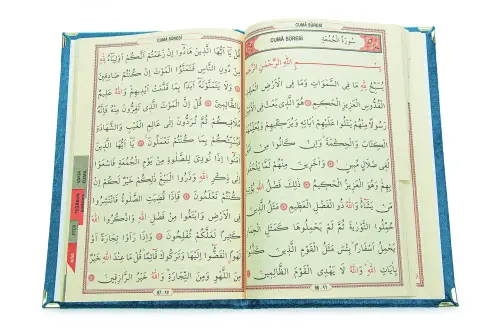 CUMÂ SÛRESİ
CUMÂ SÛRESİ سُورَةُ الْجُمُعَةِ
بِسْمِ اللّٰهِ الرَّحْمٰنِ الرَّحِيمِ
يُسَبِّحُ لِلّٰهِ مَا فِي السَّمٰوَاتِ وَمَا فِي الْاَرْضِ الْمَلِكِ
الْقُدُّوسِ الْعَزِيزِ الْحَكِيمِ هُوَ الَّذِي بَعَثَ فِي الْاُمِّيّنَ
رَسُولًا مِنْهُمْ يَتْلُوا عَلَيْهِمْ اٰيَاتِهِ وَيُزَكِّيهِمْ وَيُعَلِّمُهُمُ
الْكِتَابَ وَالْحِكْمَةَ وَاِنْ كَانُوا مِنْ قَبْلُ
لَفِي ضَلَالٍ مُبِينٍ وَاٰخَرِينَ مِنْهُمْ لَمَّا يَلْحَقُوا
بِهِمْ وَهُوَ الْعَزِيزُ الْحَكِيمُ ذٰلِكَ فَضْلُ اللّٰهِ يُؤْتِيهِ
مَنْ يَشَاءُ وَاللّٰهُ ذُو الْفَضْلِ الْعَظِيمِ مَثَلُ الَّذِينَ
حُمِّلُوا التَّوْرٰيةَ ثُمَّ لَمْ يَحْمِلُوهَا كَمَثَلِ الْحِمَارِ
يَحْمِلُ اَسْفَارًا بِئْسَ مَثَلُ الْقَوْمِ الَّذِينَ كَذَّبُوا
بِاٰيَاتِ اللّٰهِ وَاللّٰهُ لَا يَهْدِي الْقَوْمَ الظَّالِمِينَ
CUMÂ SÛRESİ
قُلْ يَا اَيُّهَا الَّذِينَ هَادُوا اِنْ زَعَمْتُمْ اَنَّكُمْ اَوْلِيَاءُ لِلّٰهِ
مِنْ دُونِ النَّاسِ فَتَمَنَّوُا الْمَوْتَ اِنْ كُنْتُمْ صَادِقِينَ
وَلَا يَتَمَنَّوْنَهُ اَبَدًا بِمَا قَدَّمَتْ اَيْدِيهِمْ وَاللّٰهُ عَلِيمٌ
بِالظَّالِمِينَ قُلْ اِنَّ الْمَوْتَ الَّذِي تَفِرُّونَ مِنْهُ فَاِنَّهُ
مُلَاقِيكُمْ ثُمَّ تُرَدُّونَ اِلٰى عَالِمِ الْغَيْبِ وَالشَّهَادَةِ
فَيُنَبِّئُكُمْ بِمَا كُنْتُمْ تَعْمَلُونَ يَا اَيُّهَا الَّذِينَ اٰمَنُوا
اِذَا نُودِيَ لِلصَّلٰوةِ مِنْ يَوْمِ الْجُمُعَةِ فَاسْعَوْا
اِلٰى ذِكْرِ اللّٰهِ وَذَرُوا الْبَيْعَ ذٰلِكُمْ خَيْرٌ لَكُمْ اِنْ
كُنْتُمْ تَعْلَمُونَ فَاِذَا قُضِيَتِ الصَّلٰوةُ فَانْتَشِرُوا
فِي الْاَرْضِ وَابْتَغُوا مِنْ فَضْلِ اللّٰهِ وَاذْكُرُوا اللّٰهَ
كَثِيرًا لَعَلَّكُمْ تُفْلِحُونَ وَاِذَا رَاَوْا تِجَارَةً اَوْ لَهْوًا
انْفَضُّوا اِلَيْهَا وَتَرَكُوكَ قَائِمًا قُلْ مَا عِنْدَ اللّٰهِ خَيْرٌ
مِنَ اللَّهْوِ وَمِنَ التِّجَارَةِ وَاللّٰهُ خَيْرُ الرَّازِقِينَ